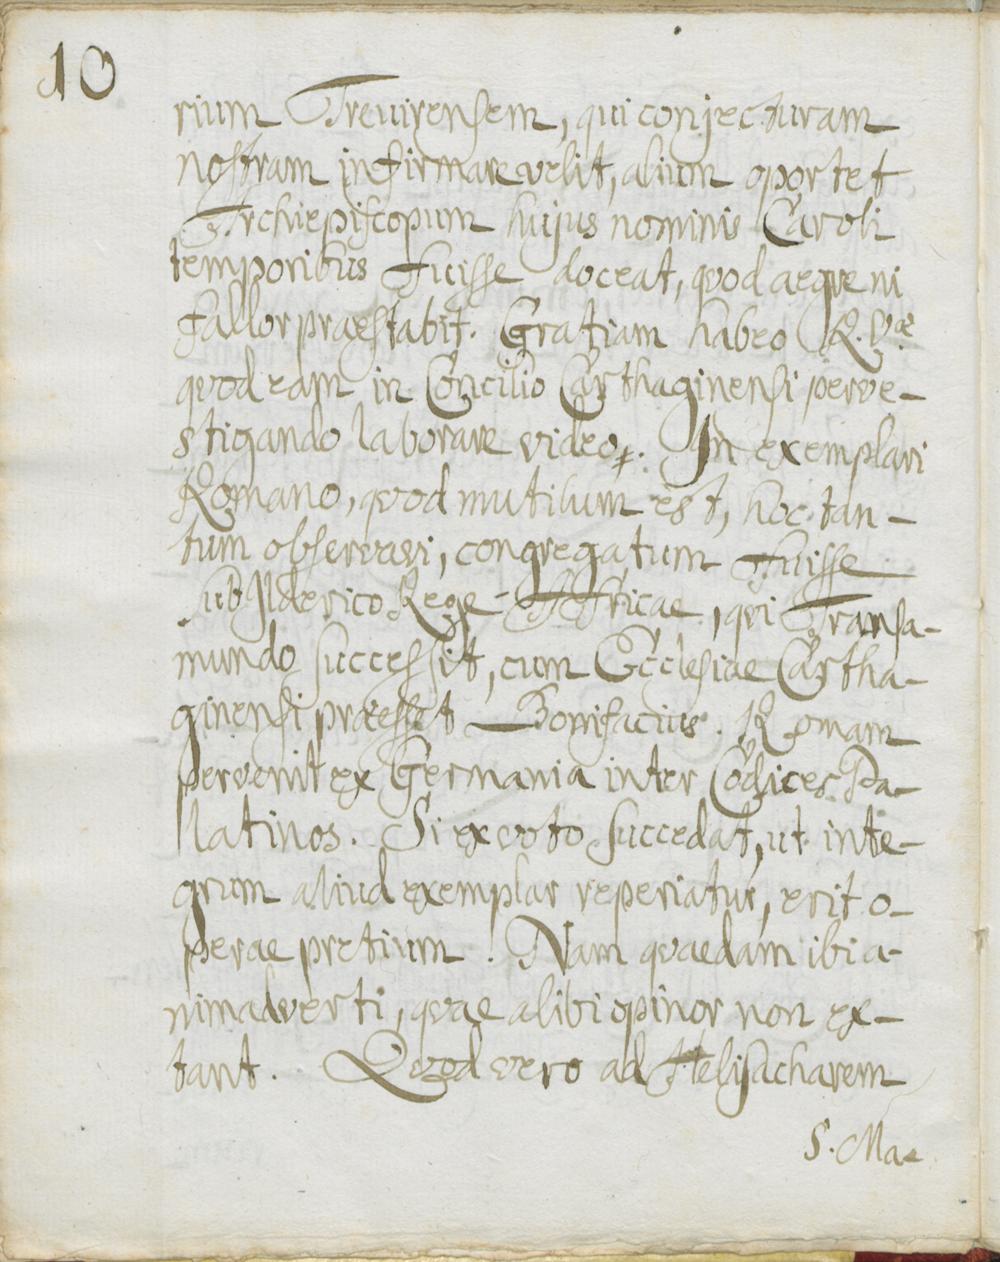 10
rium Trevirensem, qui conjecturam
nostram infirmare velit, alium oportet
Archiepiscopum hujus nominis Caroli
temporibus fuisse doceat, quod aeque ni
fallor praestabit. Gratiam habeo R. Vae
quod eam in Concilio Carthaginensi perve-
stigando laborare video. In exemplari
Romano, quod mutilum est, hoc tan-
tum observavi, congregatum fuisse
sub Ilderico Rege Africae, qui Transa-
mundo successit, cum Ecclesiae Cartha-
ginensi praeesset Bonifacius. Romam
pervenit ex Germania inter Codices Pa-
latinos. Si ex voto succedat, ut inte-
grum aliud exemplar reperiatur, erit o-
perae pretium. Nam quaedam ibi a-
nimadverti, quae alibi opinor non ex-
tant. Quod vero ad Helisacharem
S. Ma-